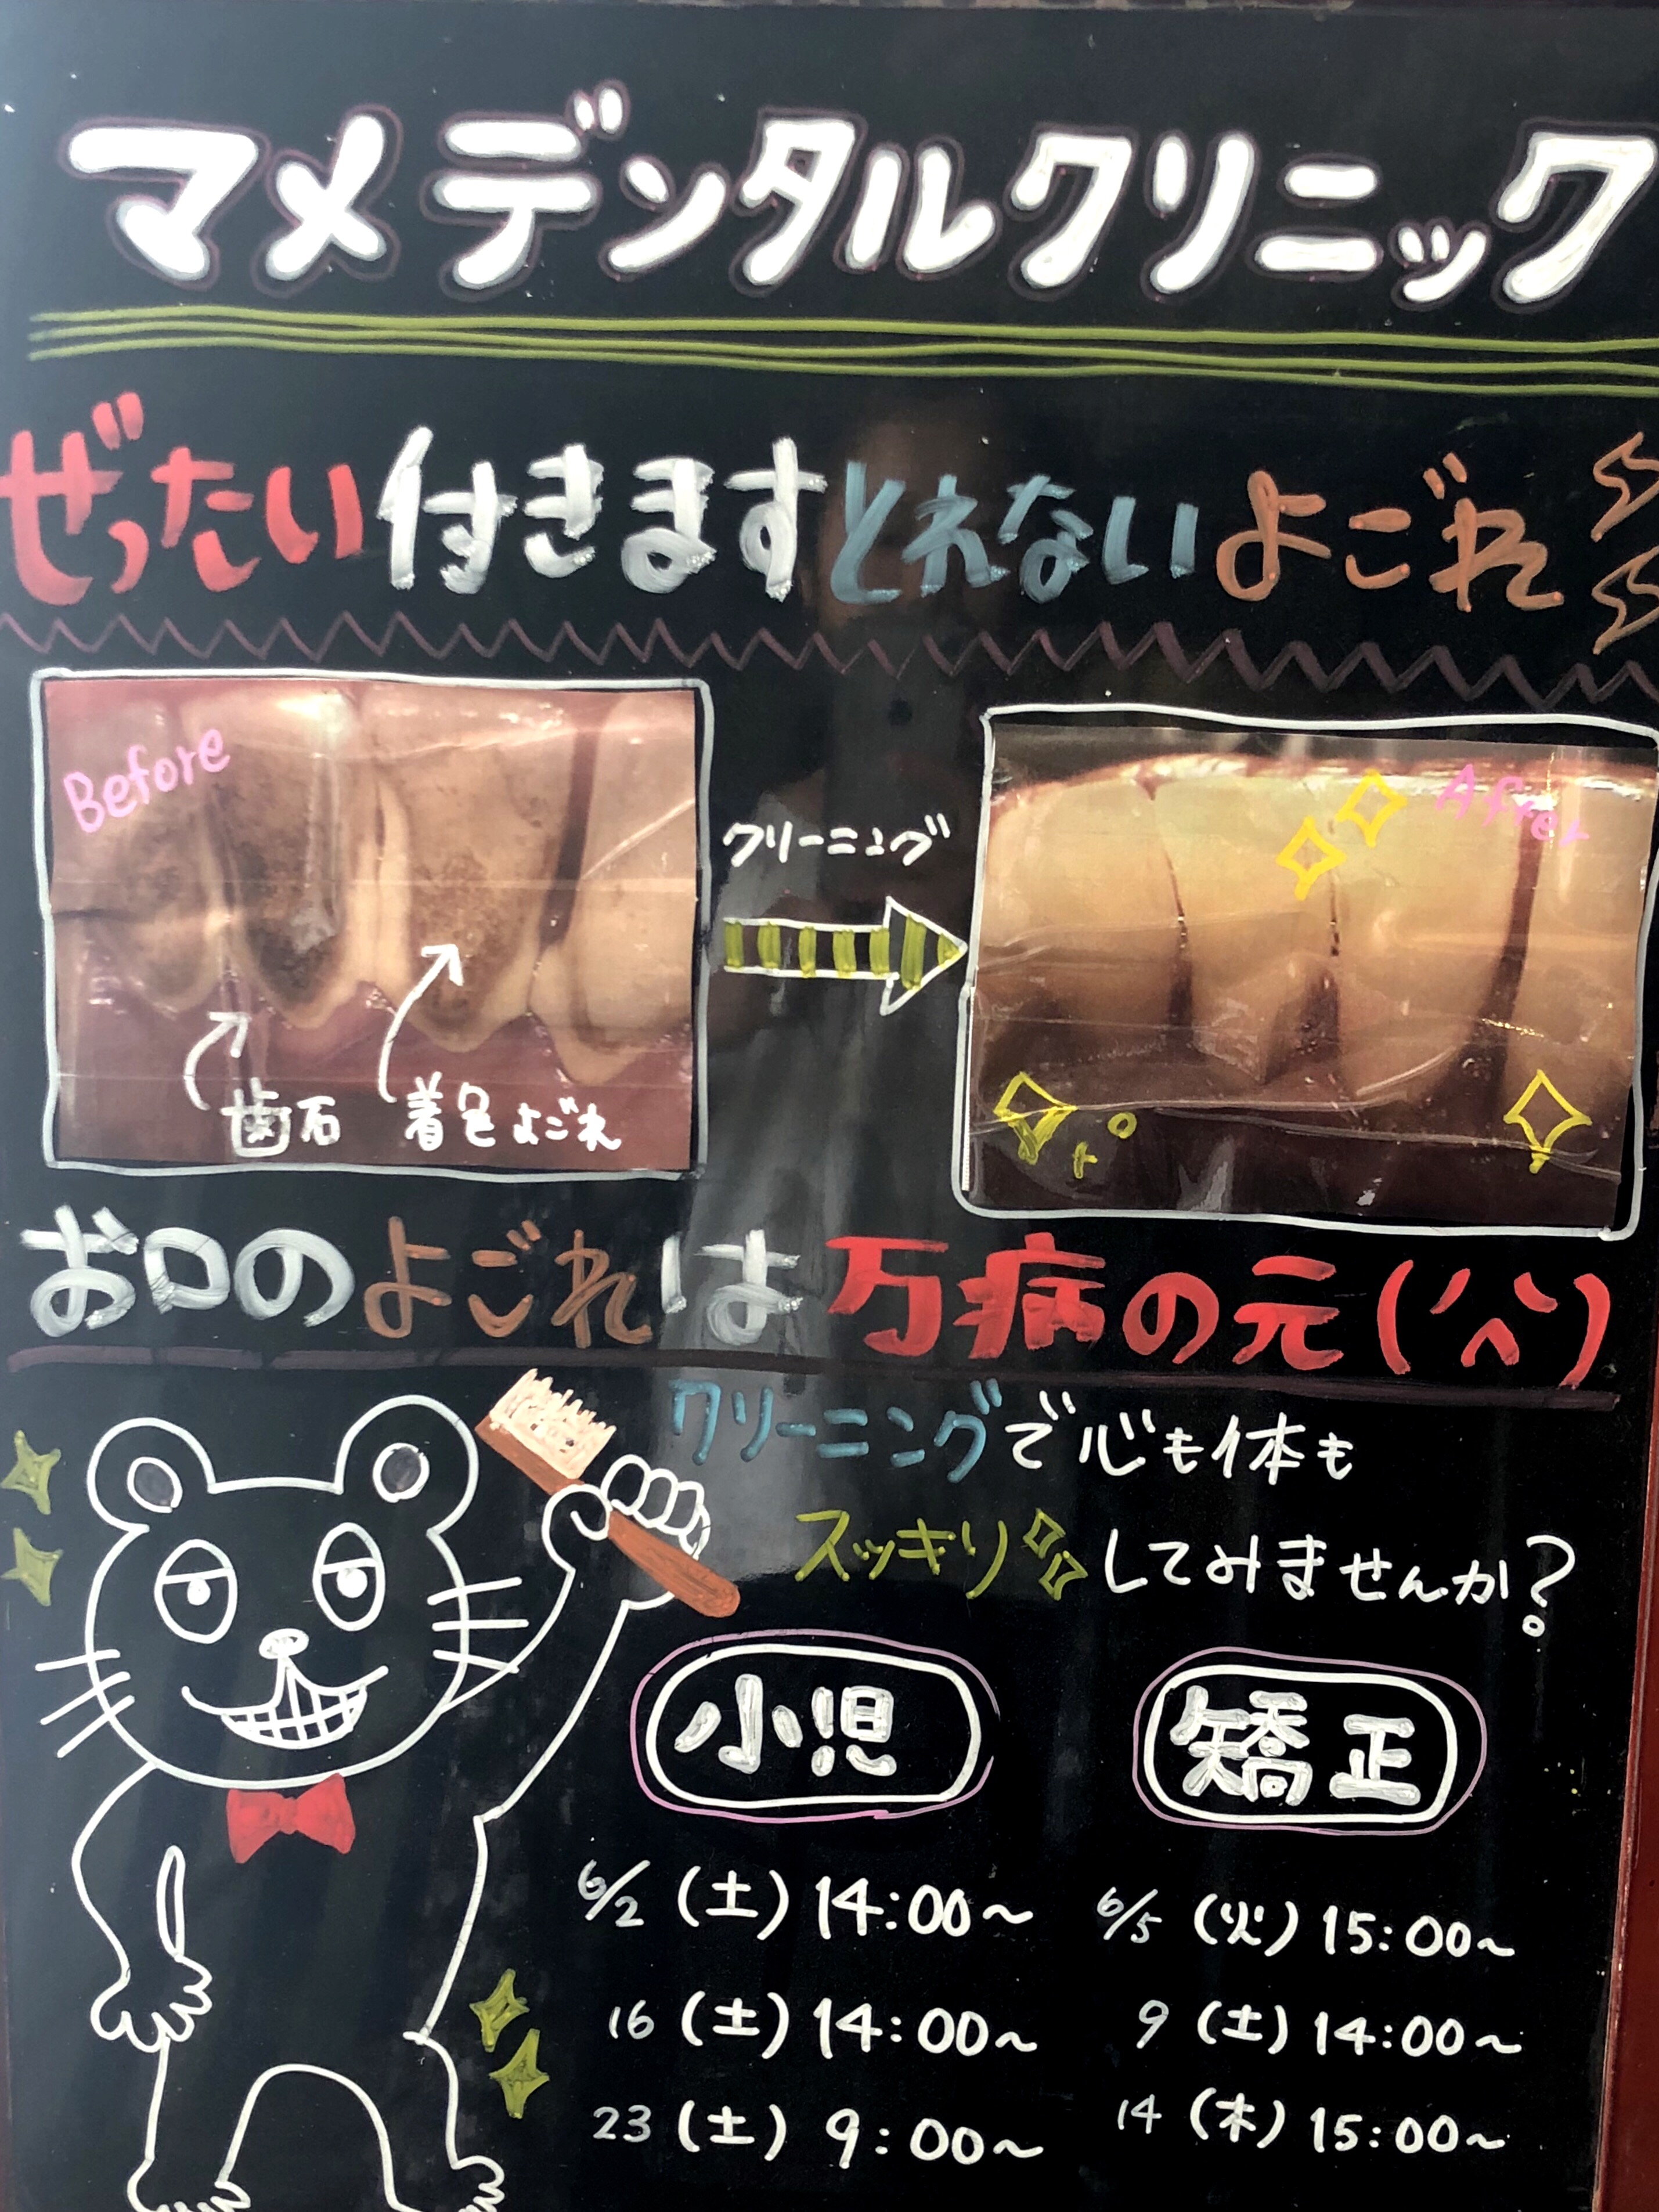 マメデンタルクリニック
ぜったい付きますとれないよごれ
Before
クリーニング
After
歯石 着色よごれ
お口のよごれは万病の元(´^`)
クリーニングで心も体も
スッキリしてみませんか?
小児
6/2 (土) 14:00~
16 (土) 14:00~
23 (土) 9:00~
矯正
6/5 (火) 15:00~
9 (土) 14:00~
14 (木) 15:00~